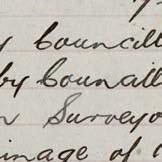 y Councill
by Councill
n Surveyo
inage of